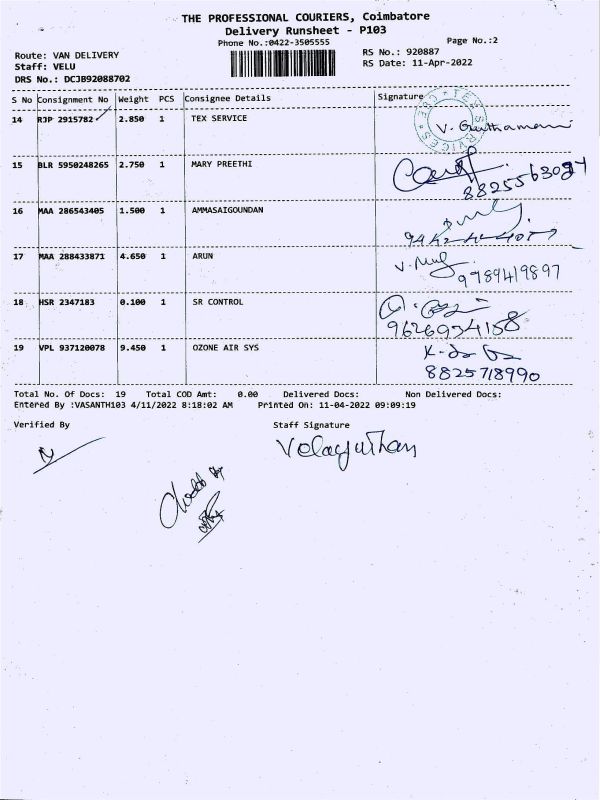 THE PROFESSIONAL COURIERS, Coimbatore
Delivery Runsheet - P103
Phone No.:0422-3505555
Page No.:2
Route: VAN DELIVERY
RS No.: 920887
Staff: VELU
RS Date: 11-Apr-2022
DRS No.: DCJB92088702
S No Consignment No Weight PCS Consignee Details Signature
14 RJP 2915782 2.850 1 TEX SERVICE
15 BLR 5950248265 2.750 1 MARY PREETHI
16 MAA 286543405 1.500 1 AMMASAIGOUNDAN
17 MAA 288433871 4.650 1 ARUN
9789419897
18 HSR 2347183 0.100 1 SR CONTROL
9626934158
19 VPL 937120078 9.450 1 OZONE AIR SYS
8825718990
Total No. Of Docs: 19 Total COD Amt: 0.00 Delivered Docs: Non Delivered Docs:
Entered By :VASANTH103 4/11/2022 8:18:02 AM Printed On: 11-04-2022 09:09:19
Verified By Staff Signature